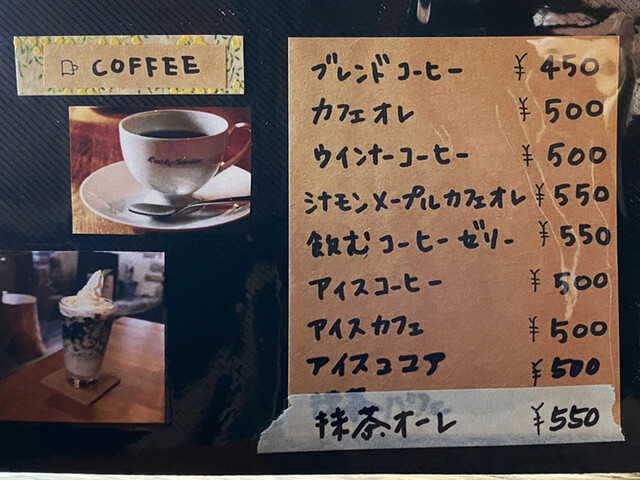 COFFEE
ブレンドコーヒー ¥450
カフェオレ ¥500
ウインナーコーヒー ¥500
シナモンメープルカフェオレ ¥550
飲むコーヒーゼリー ¥550
アイスコーヒー ¥500
アイスカフェ ¥500
アイスココア ¥500
抹茶オーレ ¥550